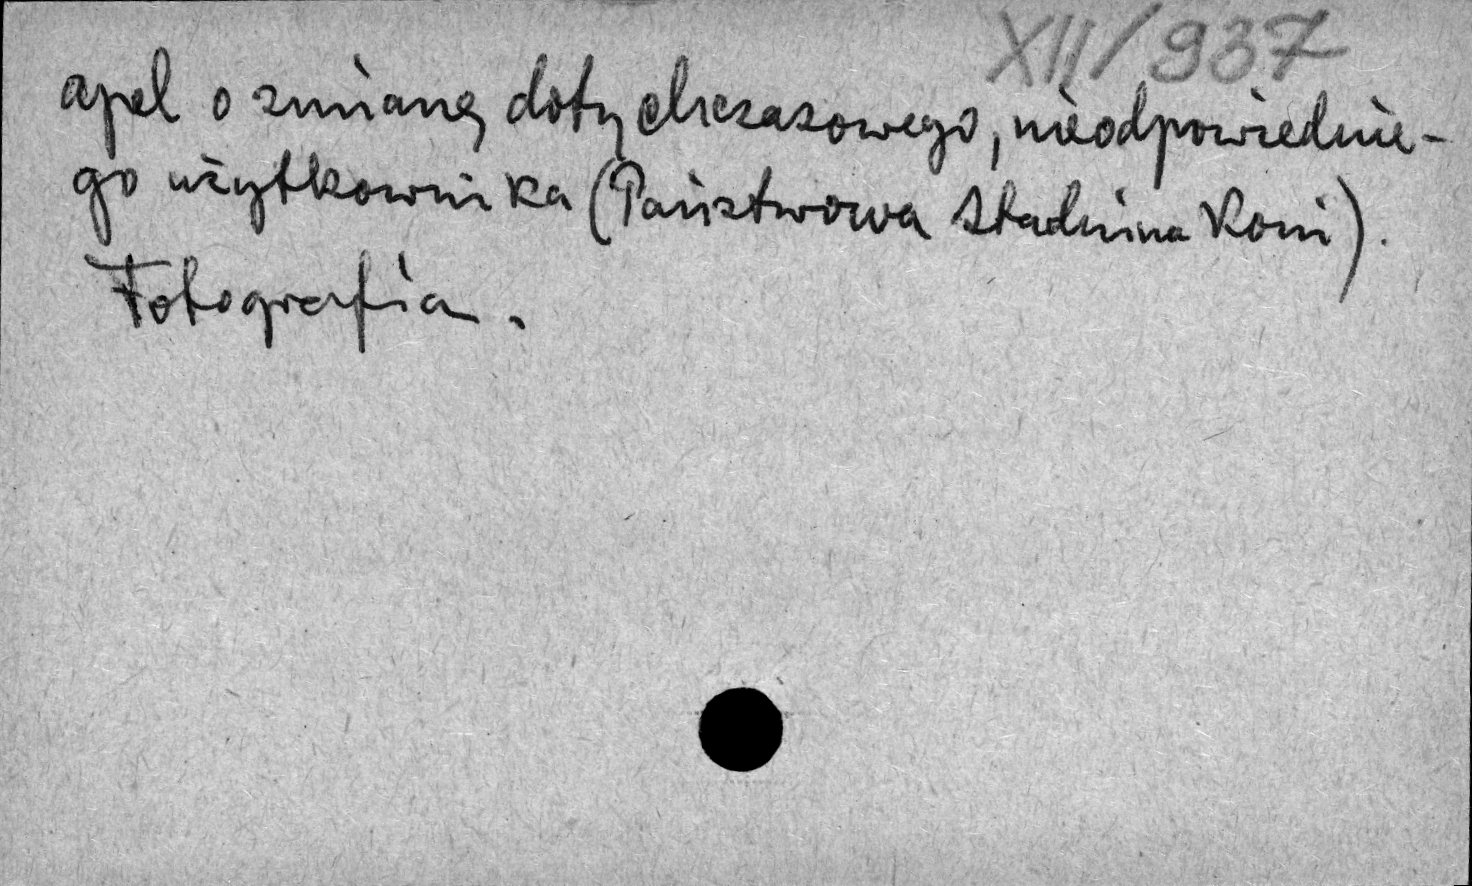 XII/937
apel o zmianę dotychczasowego, nieodpowiednie-
go użytkownika (Państwowa Stadnina Koni).
Fotografia.